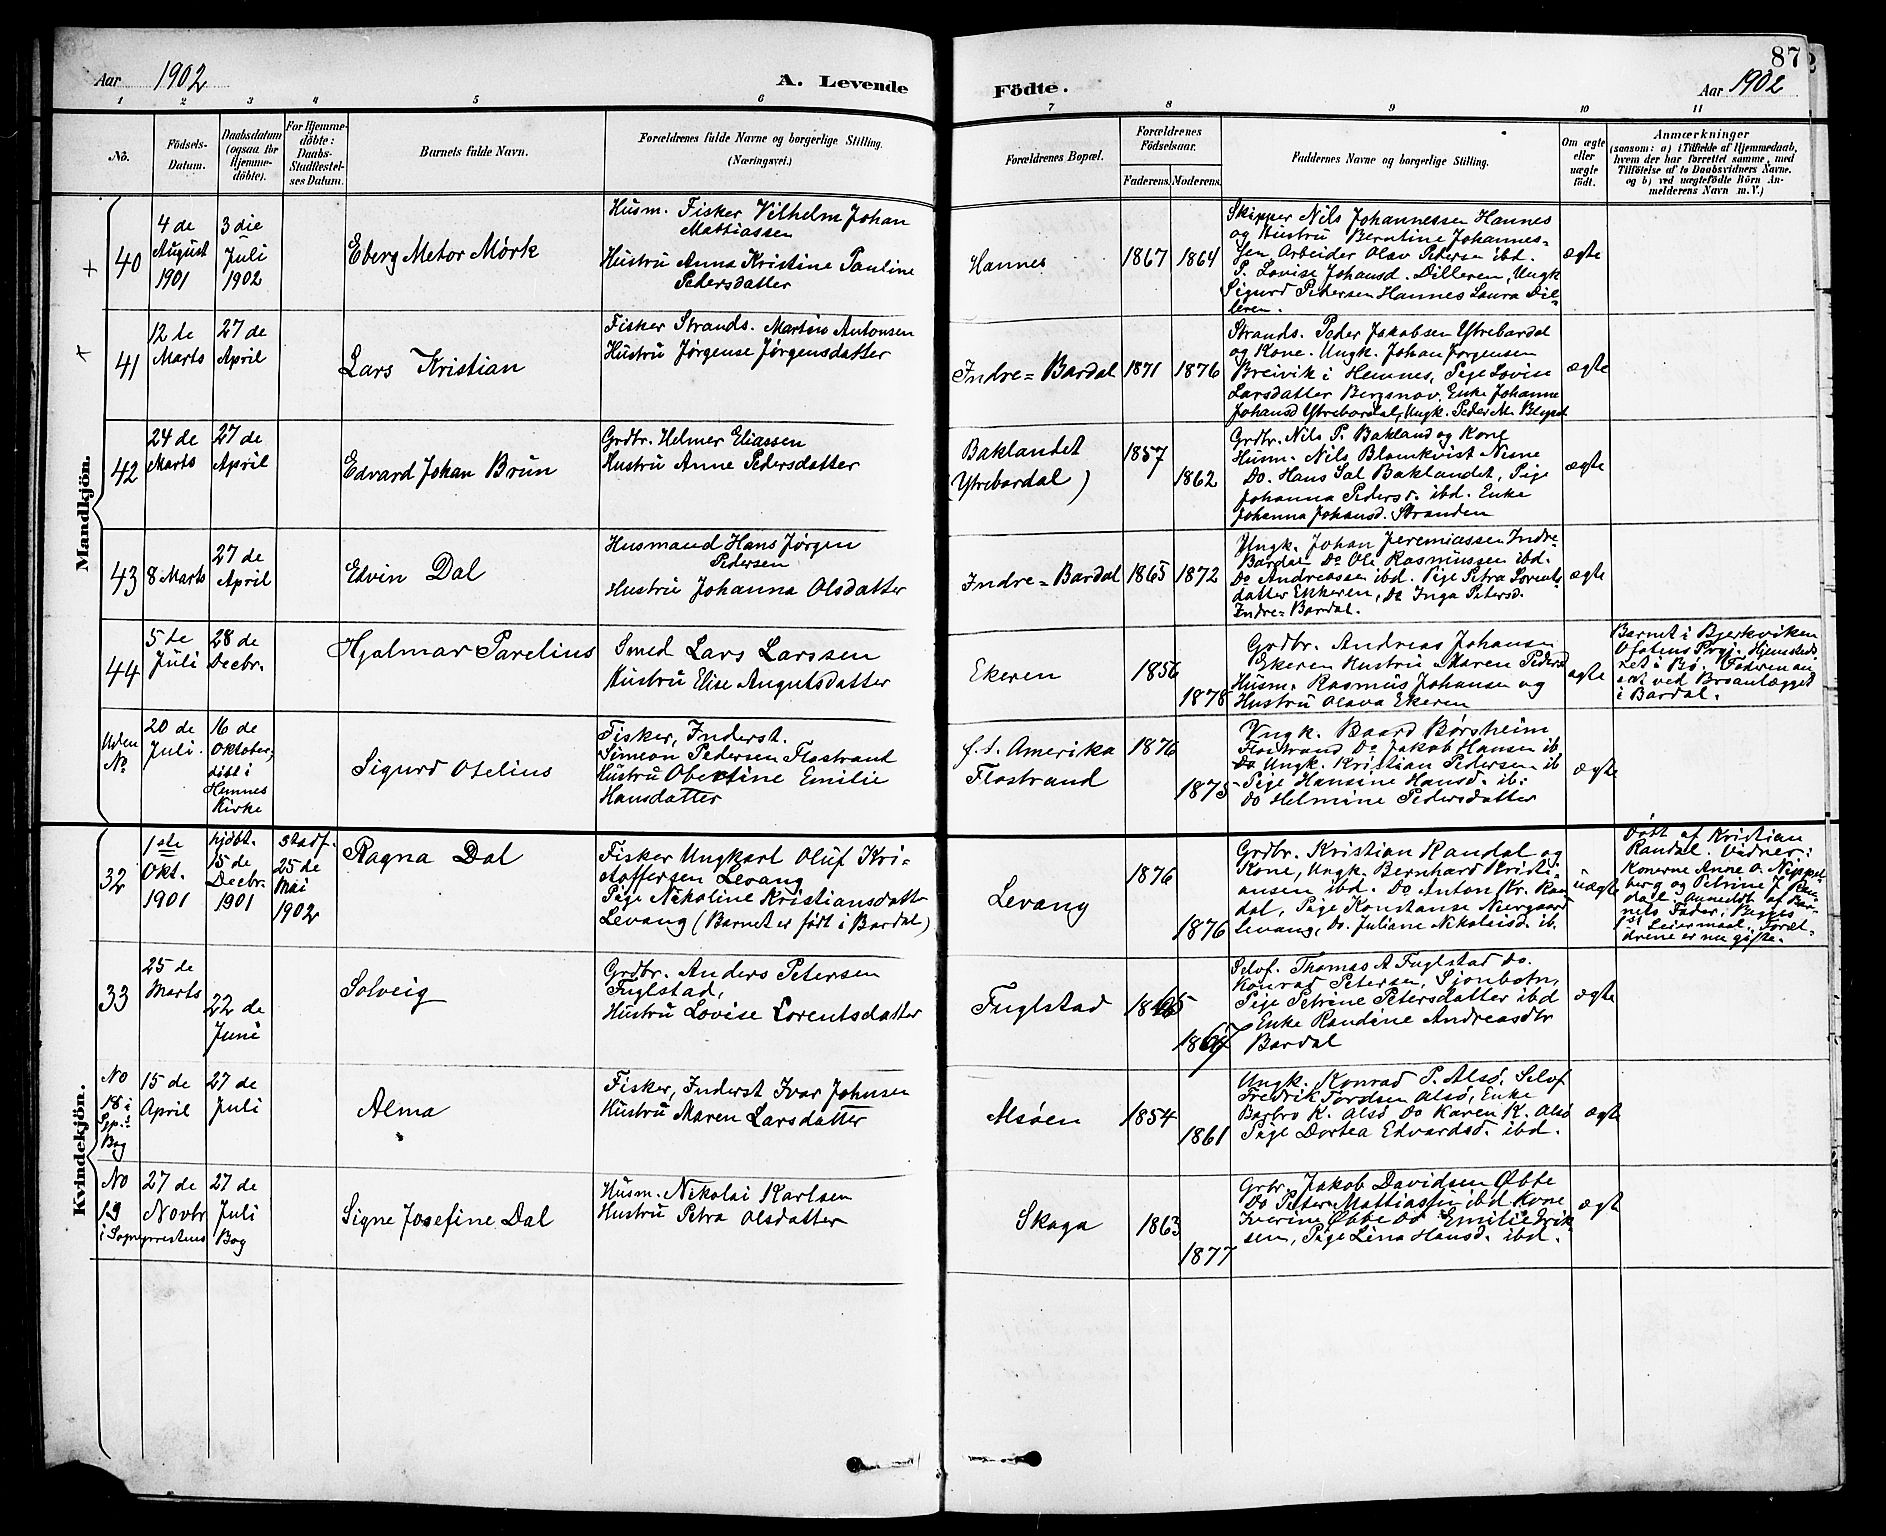 Aar 1902
A. Levende
Födte.
87
Aar 1902
1 2 3 4 5 6 7 8 9 10 11
No.
Födsels-
Datum.
Daabsdatum
(ogsaa for
Hjemme-
döbte).
For Hjemme-
döbte:
Daabs-
Stadfæstel-
ses Datum.
Barnets fulde Navn.
Forældrenes fulde Navne og borgerlige Stilling.
(Næringsvei.)
Forældrenes Bopæl.
Forældrenes
Födselsaar.
Faderens. Moderens.
Faddernes Navne og borgerlige Stilling.
Om ægte
eller
uægte
födt.
Anmærkninger
(saasom: a) i Tilfælde af Hjemmedaab,
hvem der har forrettet samme, med
Tilföielse af to Daabsvidners Navne.
og b) ved uægtefödte Börn An-
melderens Navn m. V.)
Mandkjön.
40
4 de
August
1901
3 die
Juli
1902
Eberg Metor Mörk
Husm. Fisker Vilhelm Johan
Mattiassen
Hustru Anna Kristine Pauline
Pedersdatter
Hannes
1867 1864
Skipper Nils Johannessen Hannes
og Hustru Berntine Johannes-
sen Arbeider Olav Pedersen ibd.
P. Lovise Johansd. Dilleren, Ungk
Sigurd Pedersen Hannes Laura Dil-
leren.
ægte
41
12 te
Marts
27 de
April
Lars Kristian
Fisker Strands. Martin Antonsen
Hustru Jørgense Jørgensdatter
Indre=Bardal
1871 1876
Strands. Peder Jakobsen Ytrebardal
og Kone. Ungk. Johan Jørgensen
Breivik i Hemnes, Pige Lovise
Larsdatter Bergsnov, Enke Johanne
Johansd Ytrebardal, Ungk. Peder M.
ægte
42
24 de
Marts
27 de
April
Edvard Johan Brun
Grdbr. Helmer Eliassen
Hustru Anne Pedersdatter
Baklandet
(Ytrebardal)
1857
1862
Grdbr. Nils P. Bakland og Kone
Husm. Nils Blomkvist Nesne
Do. Hans Sal Baklandet, Pige
Johanna Pedersd. ibd. Enke
Johanna Johansd. Stranden
ægte
43
8 Marts
27 de
April
Edvin Dal
Husmand Hans Jørgen
Pedersen
Hustru Johanna Olsdatter
Indre=Bardal
1865 1872
Ungk. Johan Jeremiassen Indre-
Bardal Do Ole Rasmussen ibd.
Do Andreassen ibd. Pige Petra Lorents
datter Ekkeren, Do Inga Petersd.
Indre=Bardal.
ægte
44
5 te
Juli
28 de
Decbr.
Hjalmar Parelius
Smed Lars Larssen
Hustru Elise Angutsdatter
Ekeren
1856
1878
Grdbr. Andreas Johansen
Ekeren Hustru Maren Pedersd
Husm. Rasmus Johansen og
Hustru Olava Ekeren
ægte
Barnet i Bjerkviken
Ofotens Prgj. Hjemsted
ret i Bø. Faderen an
sat ved Broanlægget
i Bardal.
Uden
No
20 de
Juli
16 de
Oktober,
døbt i
Hemnes
Kirke
Sigurd Otelius
Fisker, Inderst.
Simeon Pedersen Flostrand
Hustru Obertine Emilie
Hansdatter
f. t. Amerika
Flostrand
1876
1875
Ungk. Baard Børsheim
Flostrand Do Jakob Hansen ib
Do Ungk. Kristian Pedersen ib
Pige Hansine Hansd. ib:
Do Helmine Pedersdatter
ægte
Kvindekjön.
32
1 ste
Okt.
1901
hjdbt.
15 de
Decbr.
1901
stadf.
25 de
Mai
1902
Ragna Dal
Fisker Ungkarl Oluf Kri-
stoffersen Levang
Pige Nekoline Kristiansdatter
Levang (Barnet er født i Bardal)
Levang
1876
1876
Grdbr. Kristian Randal og
Kone, Ungk. Bernhard Kristi-
ansen ibd. Do Anton Kr. Ran
dal, Pige Konstanse Neergaard
Levang, Do. Juliane Nikolaisd. ib.
uægte
Døbt af Kristian
Randal. Vidner:
Konerne Anne O. Nippel
berg og Petrine J. Ran-
dal. Anmeldt af Bar-
nets Fader. Begges
1st Leiermaal. Foræl-
drene er nu gifte.
33
25 de
Marts
22 de
Juni
Solveig
Grdbr. Anders Petersen
Fuglstad,
Hustru Lovise Lorentsdatter
Fuglstad
1865
1867
Selvf. Thomas A Fuglstad Do.
Konrad Petersen, Sjonbotn,
Pige Petrine Petersdatter ibd
Enke Randine Andreasdtr
Bardal
ægte
No
18 i
Sp.s
Bog
15 de
April
27 de
Juli
Alma
Fisker, Inderst Ivar Johnsen
Hustru Maren Larsdatter
Alsøen
1854
1861
Ungk. Konrad P. Alsø, Selvf
Fredrik Tordsen Alsø, Enke
Barbro K. Alsø Do Karen K. Alsø
Pige Dortea Edvardsd. ibd.
ægte
No
19
i Sognprestens Bog
27 de
Novbr
27 de
Juli
Signe Josefine Dal
Husm. Nikolai Karlsen
Hustru Petra Olsdatter
Skaga
1863
1877
Grbr. Jakob Davidsen Øbte
Do Peter Mattiassen ibd Kone
Iverine Øbbe Do Emilie Erik-
sen, Pige Lina Hansd. ibd.
ægte